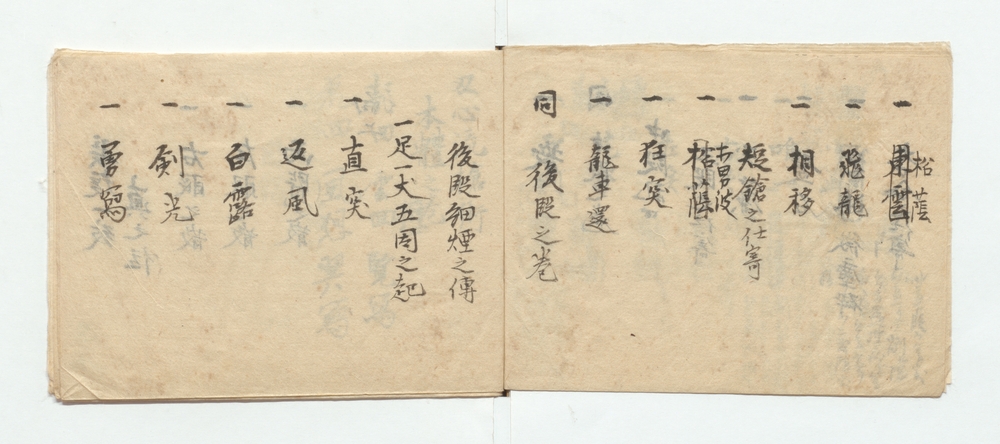 一 東雲 松蔭
一 飛龍
二 相移
短鎗之仕寄
一 松蔭 男波
一 狂突
一 龍車還
同 後段之巻
後段細煙之傳
一足一犬五固之起
一 直突
一 返風
一 白露
一 剣光
一 勇